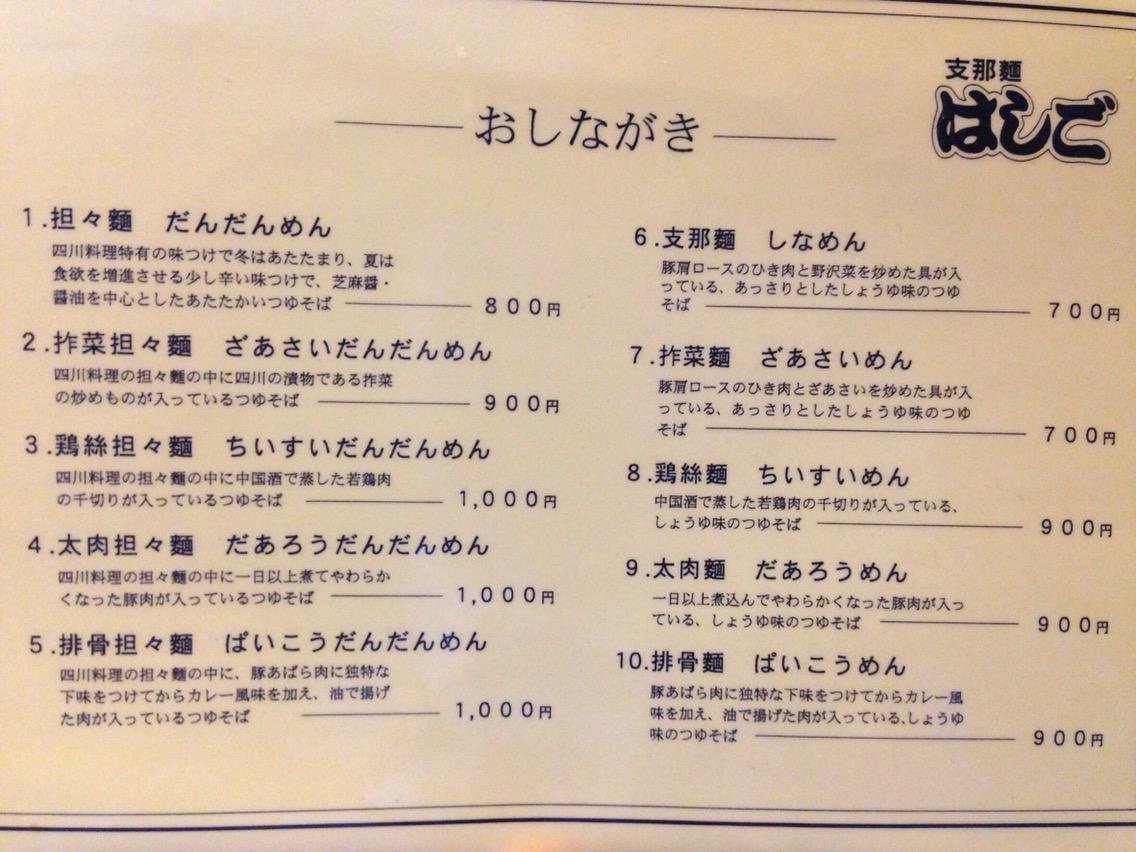 支那麵
はしご
おしながき
1.担々麵 だんだんめん
四川料理特有の味つけで冬はあたたまり、夏は
食欲を増進させる少し辛い味つけで、芝麻醤・
醤油を中心としたあたたかいつゆそば 800円
2.搾菜担々麵 ざあさいだんだんめん
四川料理の担々麵の中に四川の漬物である搾菜
の炒めものが入っているつゆそば 900円
3.鶏絲担々麵 ちいすいだんだんめん
四川料理の担々麵の中に中国酒で蒸した若鶏肉
の千切りが入っているつゆそば 1,000円
4.太肉担々麵 だあろうだんだんめん
四川料理の担々麵の中に一日以上煮てやわらか
くなった豚肉が入っているつゆそば 1,000円
5.排骨担々麵 ぱいこうだんだんめん
四川料理の担々麵の中に、豚あばら肉に独特な
下味をつけてからカレー風味を加え、油で揚げ
た肉が入っているつゆそば 1,000円
6.支那麵 しなめん
豚肩ロースのひき肉と野沢菜を炒めた具が入
っている、あっさりとしたしょうゆ味のつゆ
そば 700円
7.搾菜麵 ざあさいめん
豚肩ロースのひき肉とざあさいを炒めた具が入
っている、あっさりとしたしょうゆ味のつゆ
そば 700円
8.鶏絲麵 ちいすいめん
中国酒で蒸した若鶏肉の千切りが入っている、
しょうゆ味のつゆそば 900円
9.太肉麵 だあろうめん
一日以上煮込んでやわらかくなった豚肉が入っ
ている、しょうゆ味のつゆそば 900円
10.排骨麵 ぱいこうめん
豚あばら肉に独特な下味をつけてからカレー風
味を加え、油で揚げた肉が入っている、しょうゆ
味のつゆそば 900円